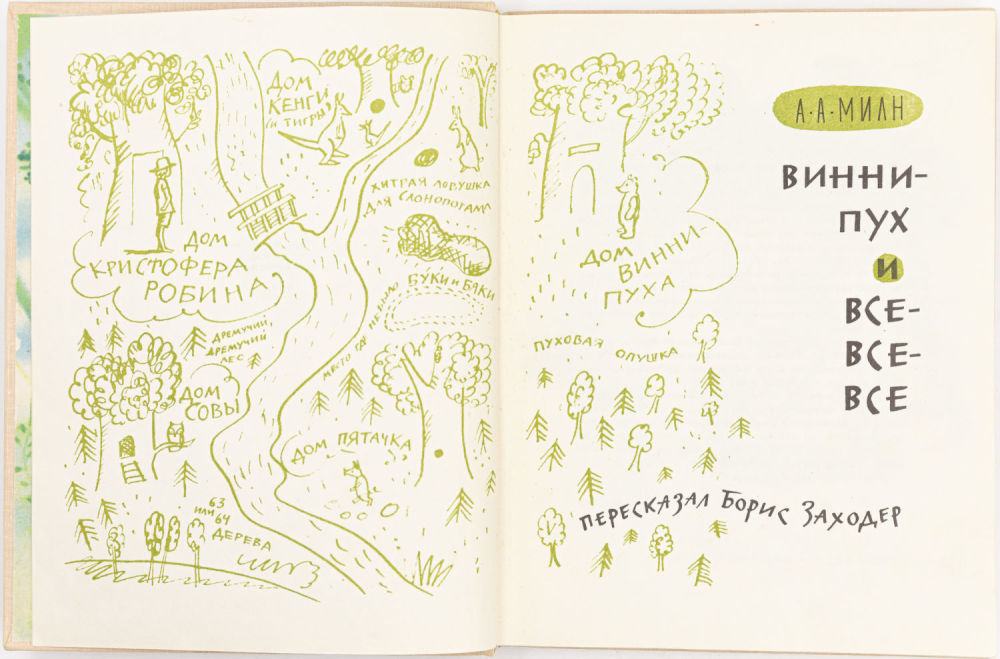 ДОМ
КЕНГИ
(И ТИГРЫ)
ХИТРАЯ ЛОВУШКА
ДЛЯ СЛОНОПОТАМА
ДОМ
КРИСТОФЕРА
РОБИНА
МЕСТО ГДЕ НЕ БЫЛО БУКИ И БЯКИ
ДРЕМУЧИЙ,
ДРЕМУЧИЙ
ЛЕС
ДОМ
СОВЫ
ДОМ ПЯТАЧКА
63
ИЛИ
64
ДЕРЕВА
ДОМ
ВИННИ-
ПУХА
ПУХОВАЯ ОПУШКА
А·А·МИЛН
ВИННИ-
ПУХ
И
ВСЕ-
ВСЕ-
ВСЕ
ПЕРЕСКАЗАЛ БОРИС ЗАХОДЕР